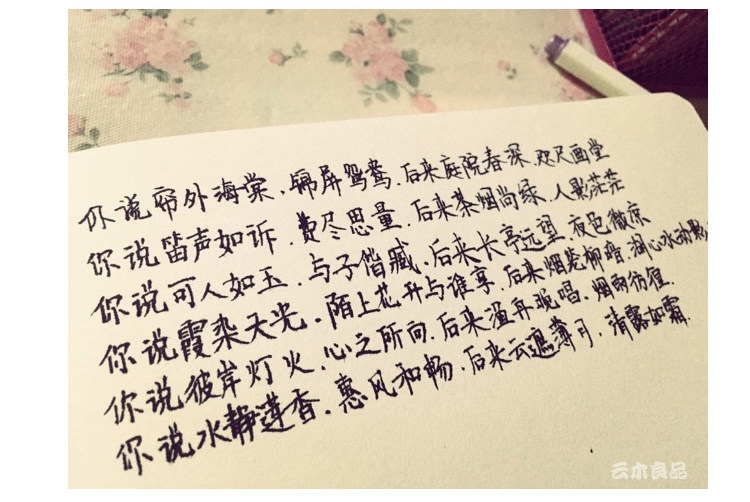 你说帘外海棠,锦屏鸳鸯,后来庭院春深,咫尺画堂
你说笛声如诉,费尽思量,后来茶烟尚绿,人影茫茫
你说可人如玉,与子偕臧,后来长亭远望,夜色微凉
你说霞染天光,陌上花开与谁享,后来烟笼柳暗,湖心水动影
你说彼岸灯火,心之所向,后来渔舟晚唱,烟雨彷徨.
你说水静莲香,惠风和畅,后来云遮薄月,清露如霜.
云木良品